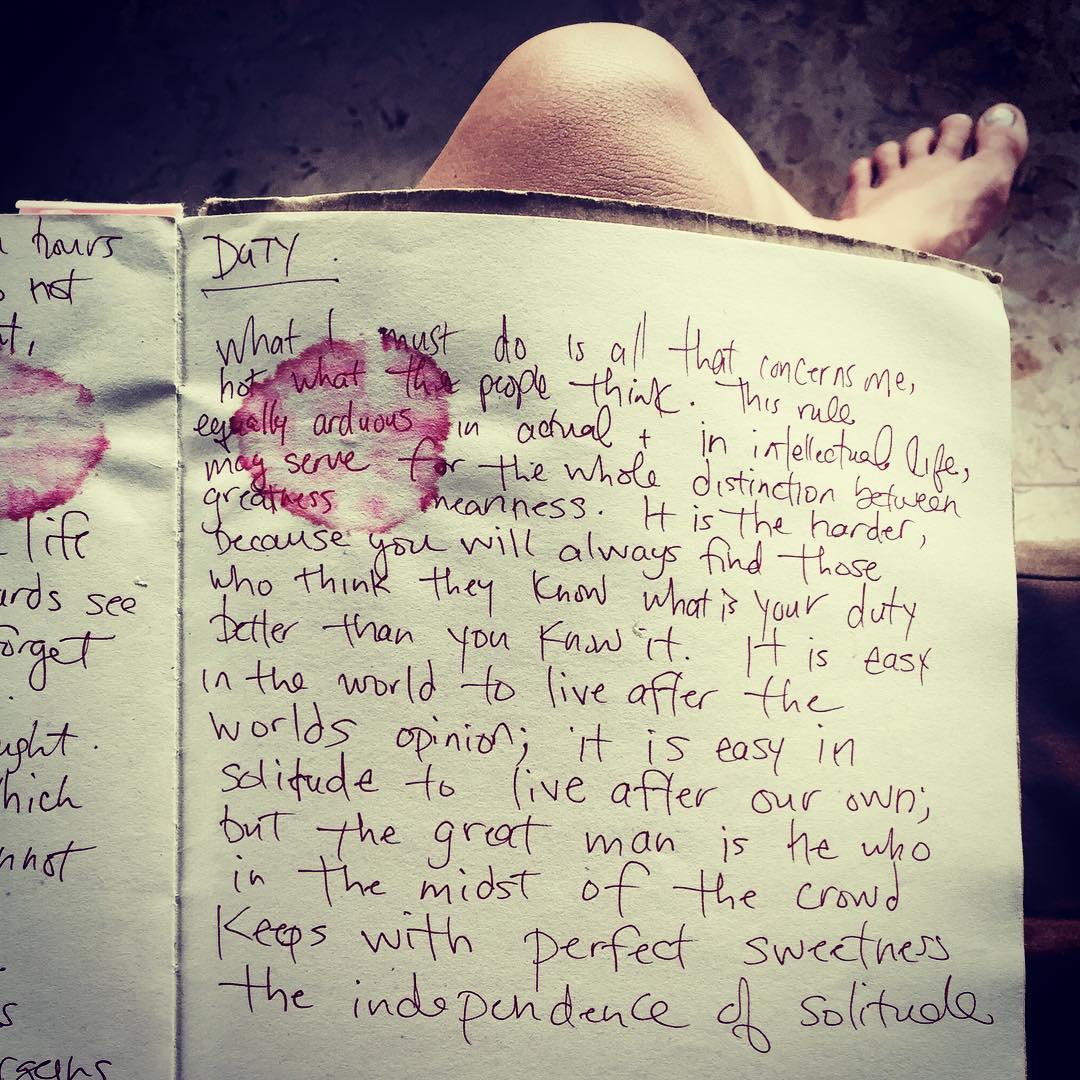 hours
not
life
see
forget
.
ught.
hich
nnot
s
DUTY.
What I must do is all that concerns me,
not what the people think. This rule
equally arduous in actual + in intellectual life,
may serve for the whole distinction between
greatness meanness. It is the harder,
because you will always find those
who think they know what is your duty
better than you know it. It is easy
in the world to live after the
worlds opinion; it is easy in
solitude to live after our own;
but the great man is he who
in the midst of the crowd
Keeps with perfect sweetness
the independence of solitude